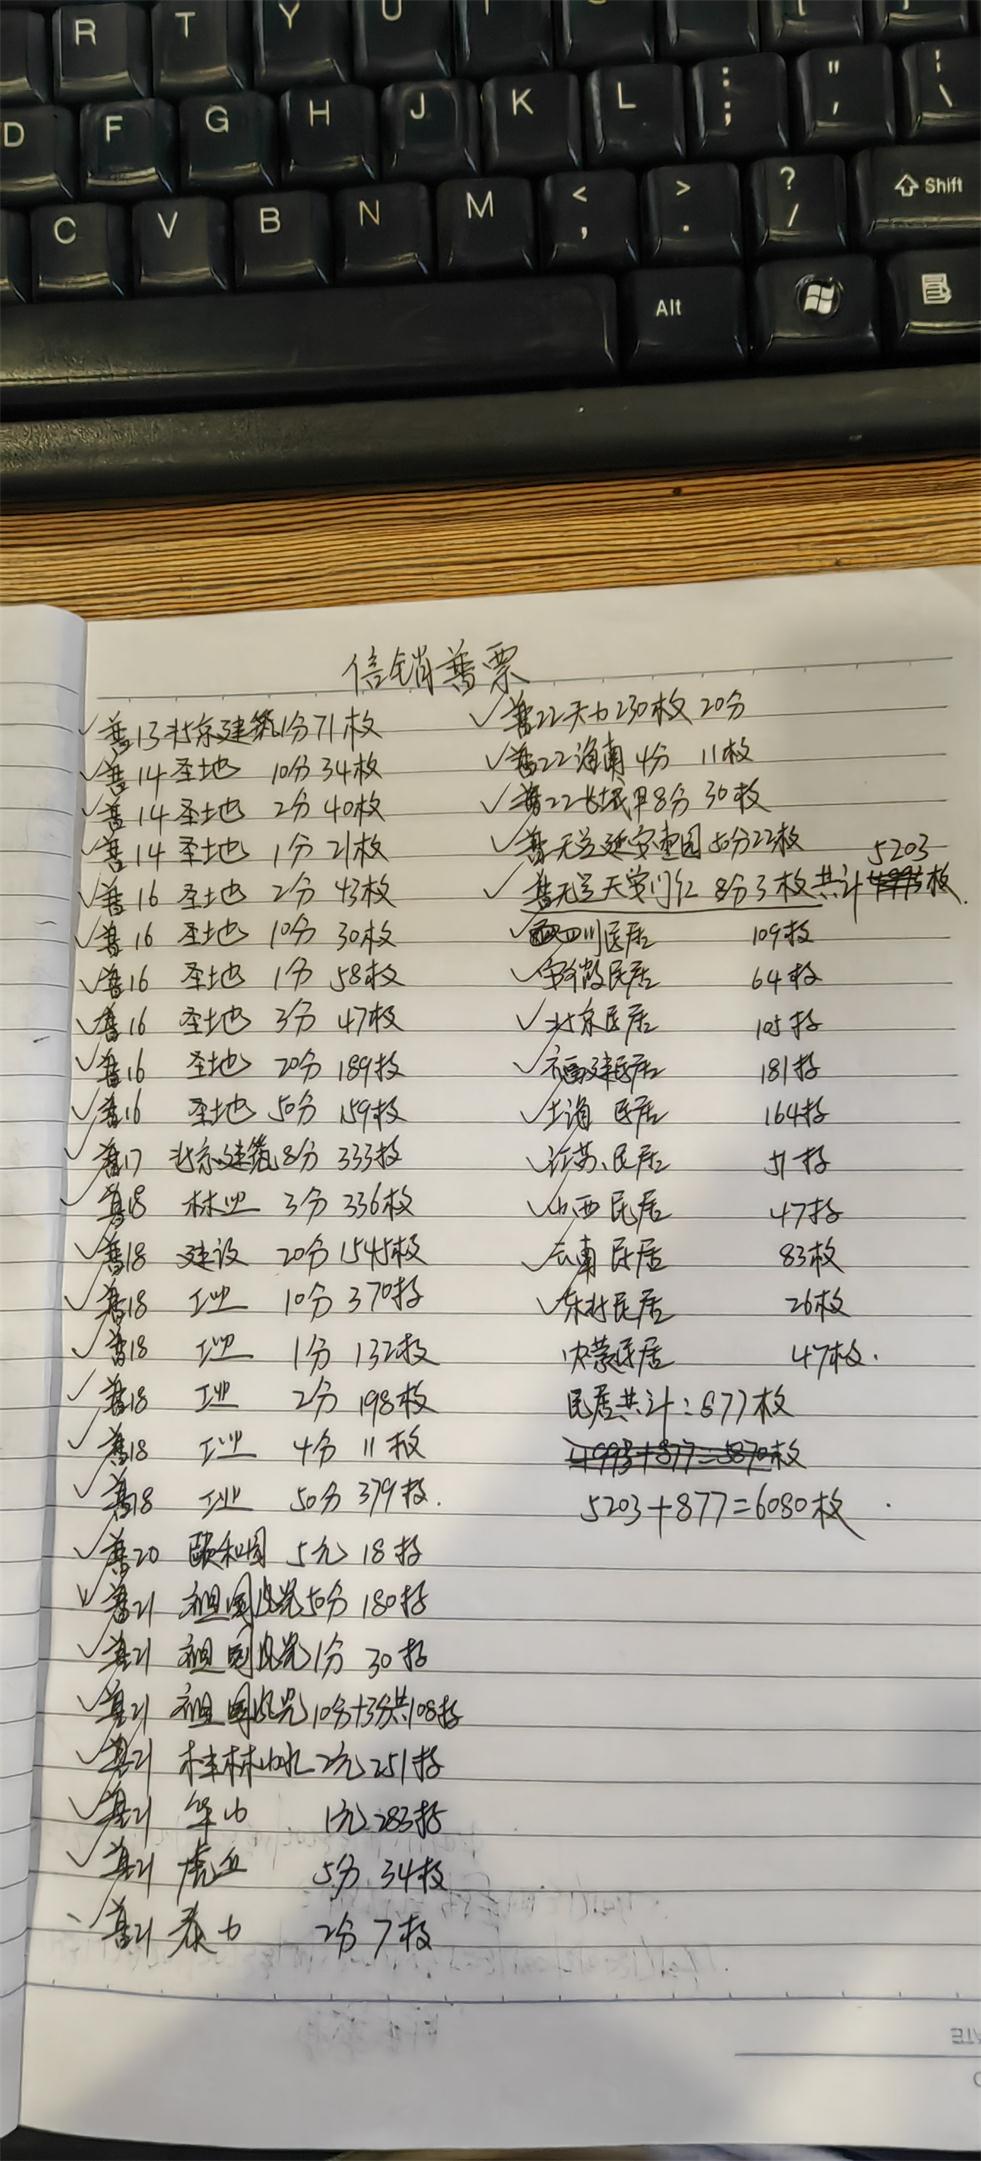 R T Y U I
D F G H J K L : ; " ' | \
C V B N M < , > . ? / Shift
Alt
信销普票
普13北京建筑1分71枚
普14圣地 10分34枚
普14圣地 2分40枚
普14圣地 1分21枚
普16 圣地 2分43枚
普16 圣地 10分30枚
普16 圣地 1分 58枚
普16 圣地 3分 47枚
普16 圣地 20分189枚
普16 圣地 50分159枚
普17 北京建筑8分 333枚
普18 林业 3分336枚
普18 建设 20分1545枚
普18 工业 10分370枚
普18 工业 1分 132枚
普18 工业 2分 198枚
普18 工业 4分 11枚
普18 工业 50分379枚.
普20 颐和园 5元 18枚
普21 祖国风光50分 180枚
普21 祖国风光1分 30枚
普21 祖国风光10分+3分共108枚
普21 桂林山水 2元251枚
普21 华山 1元283枚
普21 虎丘 5分 34枚
普21 泰山 2分 7枚
普22天山230枚 20分
普22海南4分 11枚
普22长城甲8分 30枚
普无号延安枣园50分22枚
5203
普无号天安门红 8分3枚共计 枚.
四川民居 109枚
安徽民居 64枚
北京民居 105枚
福建民居 181枚
上海 民居 164枚
江苏民居 51枚
山西民居 47枚
云南民居 83枚
东北民居 26枚
内蒙民居 47枚.
民居共计:877枚
4993+877=5870枚
5203+877=6080枚